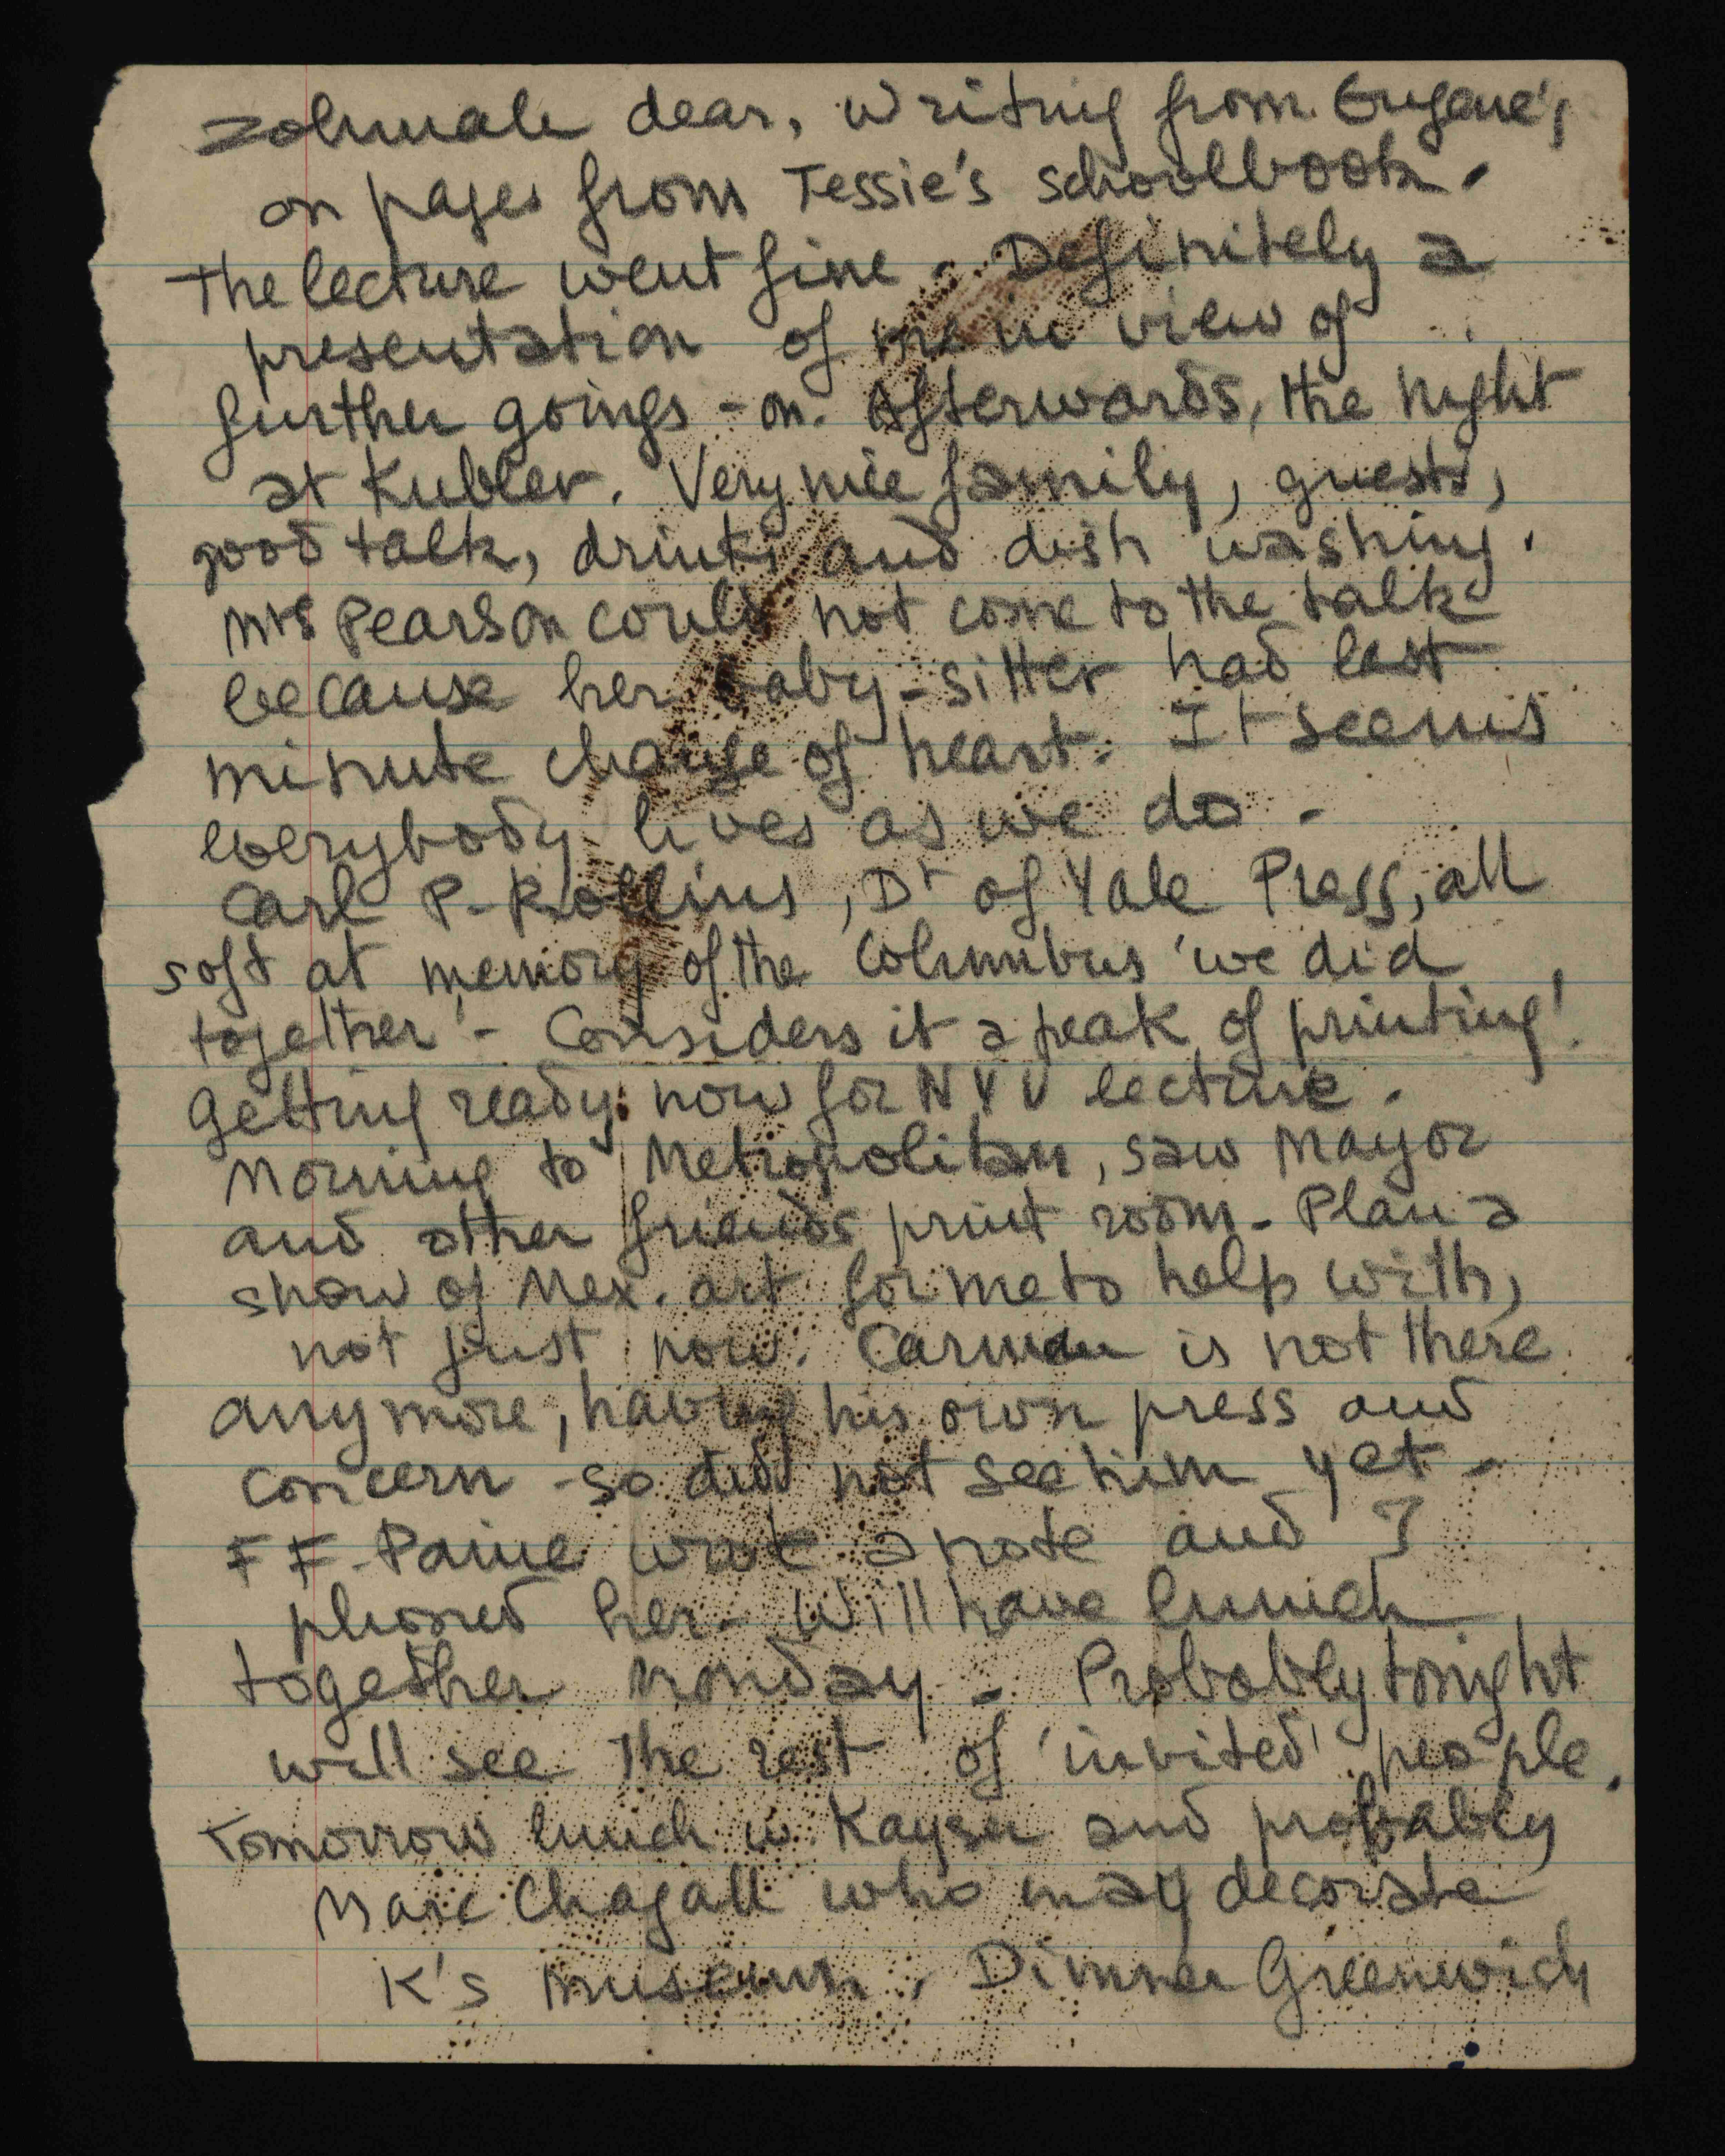 Zohmah dear, Writing from Eugene's
on pages from Tessie's schoolbook.
The lecture went fine. Definitely a
presentation of me in view of
further goings-on. Afterwards, the night
at Kubler. Very nice family, guests,
good talk, drinks and dish washing.
Mrs Pearson could not come to the talk
because her baby-sitter had last
minute change of heart. It seems
everybody lives as we do -
Carl P. Rollins, Dr of Yale Press, all
soft at memory of the Columbus 'we did
together' - Considers it a peak of printing!
Getting ready now for NYU lecture.
Morning to Metropolitan, saw Mayor
and other friends print room - Plan a
show of Mex. art for me to help with,
not just now. Carmen is not there
anymore, having his own press and
concern - so did not see him yet -
FF. Paine wrote a note and I
phoned her - Will have lunch
together monday - Probably tonight
will see the rest of 'invited' people.
Tomorrow lunch w. Kayser and probably
Marc Chagall who may decorate
K's museum. Dinner Greenwich